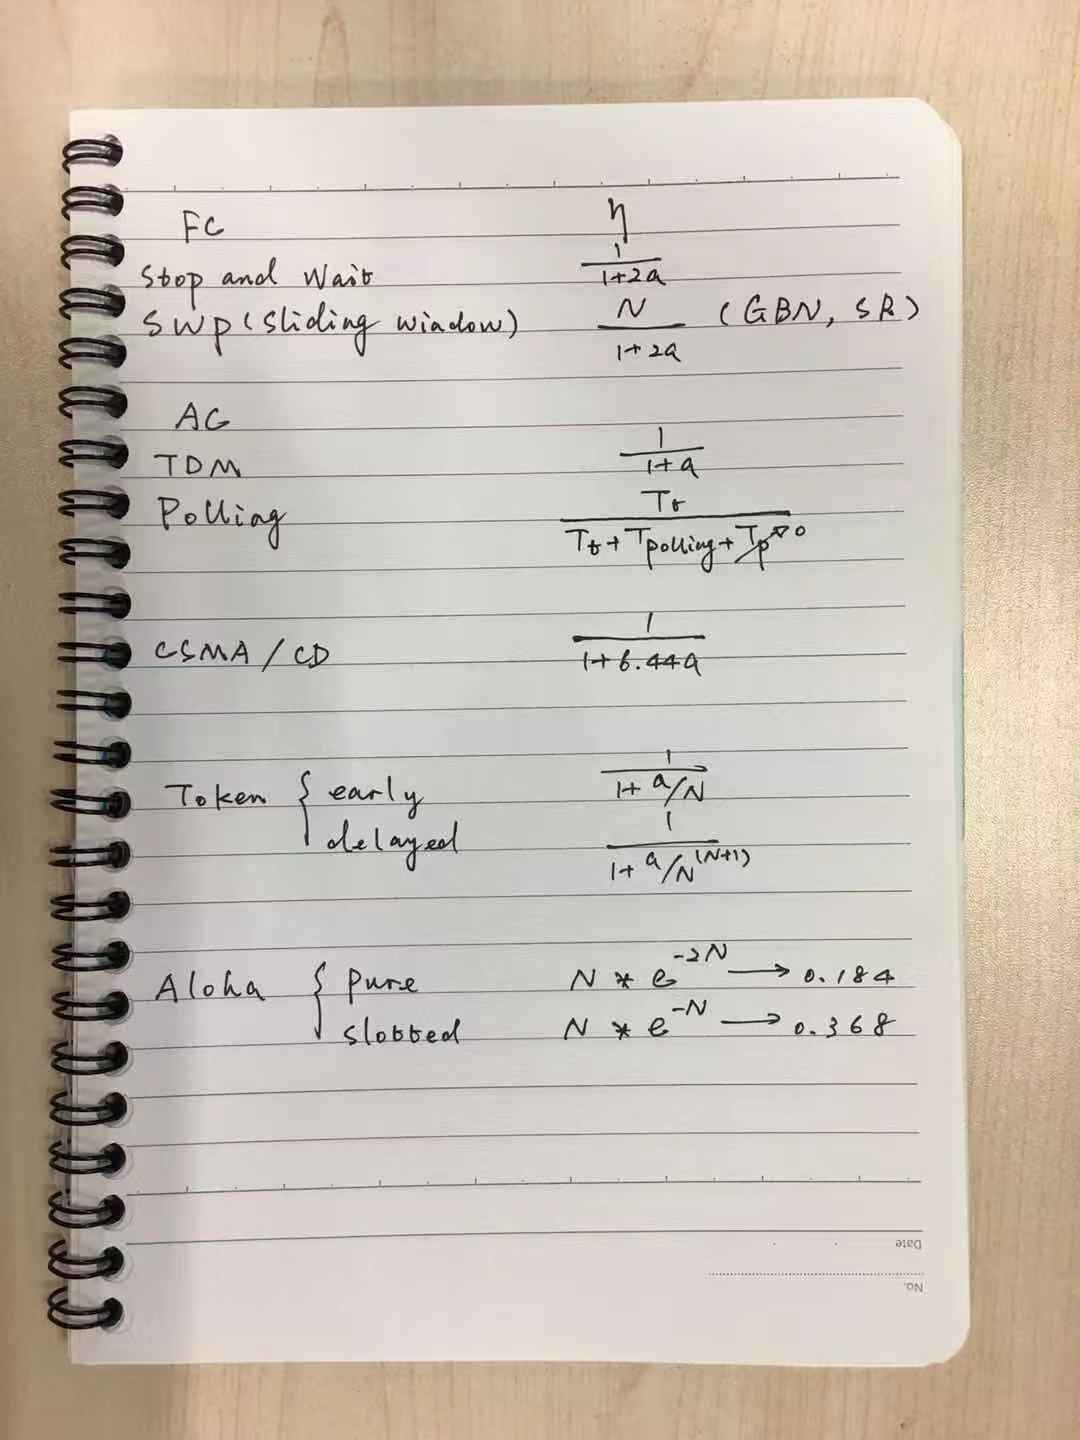 FC η
Stop and Wait 1/(1+2a)
SWP (Sliding window) N/(1+2a) (GBN, SR)
AC
TDM 1/(1+a)
Polling Tt/(Tt + Tpolling + Tp→0)
CSMA/CD 1/(1+6.44a)
Token { early 1/(1+a/N)
delayed 1/(1+a/N(N+1))
Aloha { pure N * e^-2N → 0.184
slotted N * e^-N → 0.368
Date
No.